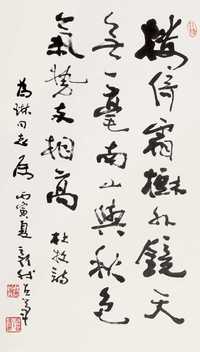 樓倚霜樹外鏡天
無一毫南山與秋色
氣勢兩相高 杜牧詩
為琳同志屬 丙寅夏 新我左筆